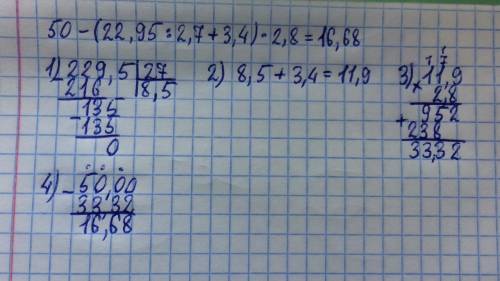 50 - (22,95 : 2,7 + 3,4) · 2,8 = 16,68
1) 229,5 27
216 8,5
135
- 135
0
2) 8,5 + 3,4 = 11,9
3) 1 7
11,9
× 2,8
952
+ 238
33,32
4) - 50,00
33,32
16,68